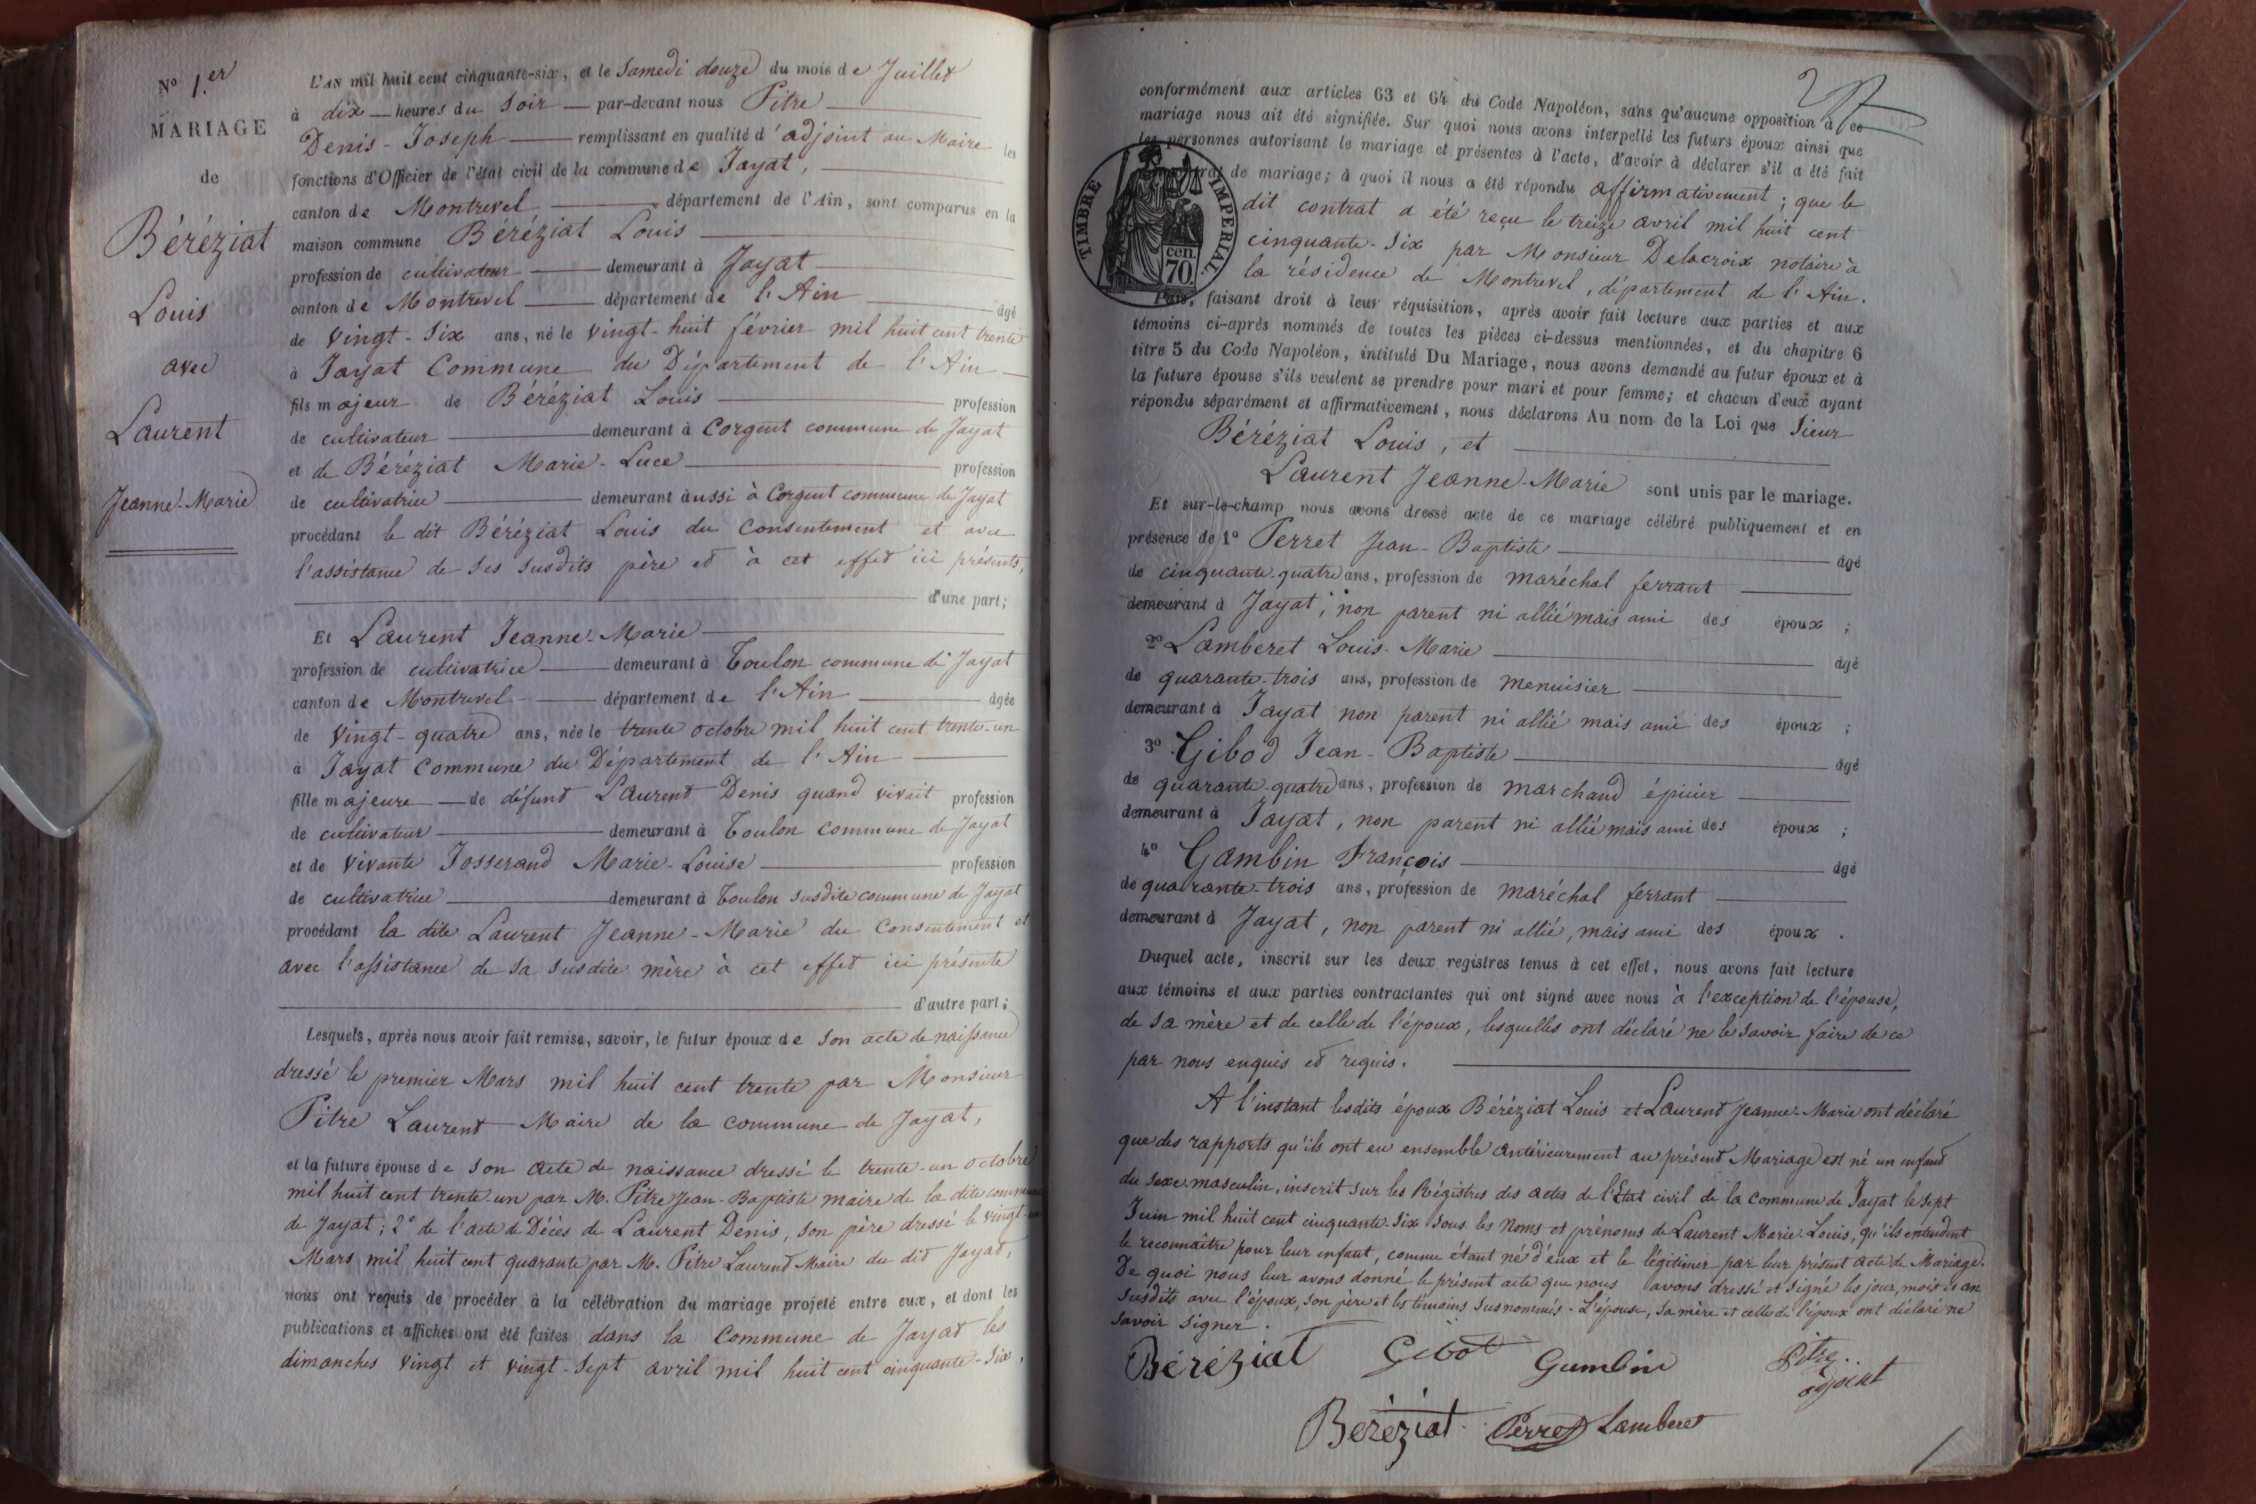 N° 1.er
MARIAGE
de
Béréziat
Louis
avec
Laurent
Jeanne-Marie
L'AN mil huit cent cinquante-six, et le Samedi douze du mois de Juillet
à dix heures du Soir par-devant nous Pitre
Denis-Joseph remplissant en qualité d'adjoint au Maire les
fonctions d'Officier de l'état civil de la commune de Jayat,
canton de Montrevel département de l'Ain, sont comparus en la
maison commune Béréziat Louis
profession de cultivateur demeurant à Jayat
canton de Montrevel département de l'Ain âgé
de vingt-six ans, né le vingt-huit février mil huit cent trente
à Jayat Commune du Département de l'Ain
fils majeur de Béréziat Louis profession
de cultivateur demeurant à Corgent commune de Jayat
et de Béréziat Marie-Luce profession
de cultivatrice demeurant aussi à Corgent commune de Jayat
procédant le dit Béréziat Louis du Consentement et avec
l'assistance de ses susdits père et à cet effet ici présents,
d'une part;
Et Laurent Jeanne-Marie
profession de cultivatrice demeurant à Toulon commune de Jayat
canton de Montrevel département de l'Ain âgée
de vingt-quatre ans, née le trente octobre mil huit cent trente-un
à Jayat Commune du Département de l'Ain
fille majeure de défunt Laurent Denis quand vivait profession
de cultivateur demeurant à Toulon commune de Jayat
et de vivante Josserand Marie-Louise profession
de cultivatrice demeurant à Toulon susdite commune de Jayat
procédant la dite Laurent Jeanne-Marie du Consentement et
avec l'assistance de sa susdite mère à cet effet ici présente
d'autre part;
Lesquels, après nous avoir fait remise, savoir, le futur époux de son acte de naissance
dressé le premier Mars mil huit cent trente par Monsieur
Pitre Laurent Maire de la commune de Jayat,
et la future épouse de son acte de naissance dressé le trente-un octobre
mil huit cent trente-un par M. Pitre Jean-Baptiste maire de la dite commune
de Jayat; 2° de l'acte de Décès de Laurent Denis, son père dressé le vingt
Mars mil huit cent quarante par M. Pitre Laurent Maire du dit Jayat,
nous ont requis de procéder à la célébration du mariage projeté entre eux, et dont les
publications et affiches ont été faites dans la Commune de Jayat les
dimanches vingt et vingt-sept avril mil huit cent cinquante-six,
conformément aux articles 63 et 64 du Code Napoléon, sans qu'aucune opposition à ce
mariage nous ait été signifiée. Sur quoi nous avons interpellé les futurs époux ainsi que
les personnes autorisant le mariage et présentes à l'acte, d'avoir à déclarer s'il a été fait
contrat de mariage; à quoi il nous a été répondu affirmativement; que le
dit contrat a été reçu le treize avril mil huit cent
cinquante-six par Monsieur Delacroix notaire à
la résidence de Montrevel, département de l'Ain.
TIMBRE IMPERIAL
cen.
70.
Puis, faisant droit à leur réquisition, après avoir fait lecture aux parties et aux
témoins ci-après nommés de toutes les pièces ci-dessus mentionnées, et du chapitre 6
titre 5 du Code Napoléon, intitulé Du Mariage, nous avons demandé au futur époux et à
la future épouse s'ils veulent se prendre pour mari et pour femme; et chacun d'eux ayant
répondu séparément et affirmativement, nous déclarons Au nom de la Loi que Sieur
Béréziat Louis, et
Laurent Jeanne-Marie sont unis par le mariage.
Et sur-le-champ nous avons dressé acte de ce mariage célébré publiquement et en
présence de 1° Perret Jean-Baptiste âgé
de cinquante-quatre ans, profession de maréchal ferrant
demeurant à Jayat, non parent ni allié mais ami des époux;
2° Lamberet Louis-Marie âgé
de quarante-trois ans, profession de menuisier
demeurant à Jayat non parent ni allié mais ami des époux;
3° Gibod Jean-Baptiste âgé
de quarante-quatre ans, profession de marchand épicier
demeurant à Jayat, non parent ni allié mais ami des époux;
4° Gambin François âgé
de quarante-trois ans, profession de maréchal ferrant
demeurant à Jayat, non parent ni allié, mais ami des époux.
Duquel acte, inscrit sur les deux registres tenus à cet effet, nous avons fait lecture
aux témoins et aux parties contractantes qui ont signé avec nous à l'exception de l'épouse,
de sa mère et de celle de l'époux, lesquelles ont déclaré ne le savoir faire de ce
par nous enquis et requis.
A l'instant lesdits époux Béréziat Louis et Laurent Jeanne-Marie ont déclaré
que des rapports qu'ils ont eu ensemble antérieurement au présent Mariage est né un enfant
du sexe masculin, inscrit sur les Régistres des actes de l'Etat civil de la commune de Jayat le sept
Juin mil huit cent cinquante-six sous les Noms et prénoms de Laurent Marie-Louis, qu'ils entendent
le reconnaître pour leur enfant, comme étant né d'eux et le légitimer par leur présent acte de Mariage.
De quoi nous leur avons donné le présent acte que nous avons dressé et signé les jour, mois et an
susdits avec l'époux, son père et les témoins susnommés. L'épouse, sa mère et celle de l'époux ont déclaré ne
savoir signer.
Béréziat Gibod Gambin Pitre
adjoint
Béréziat Perret Lamberet